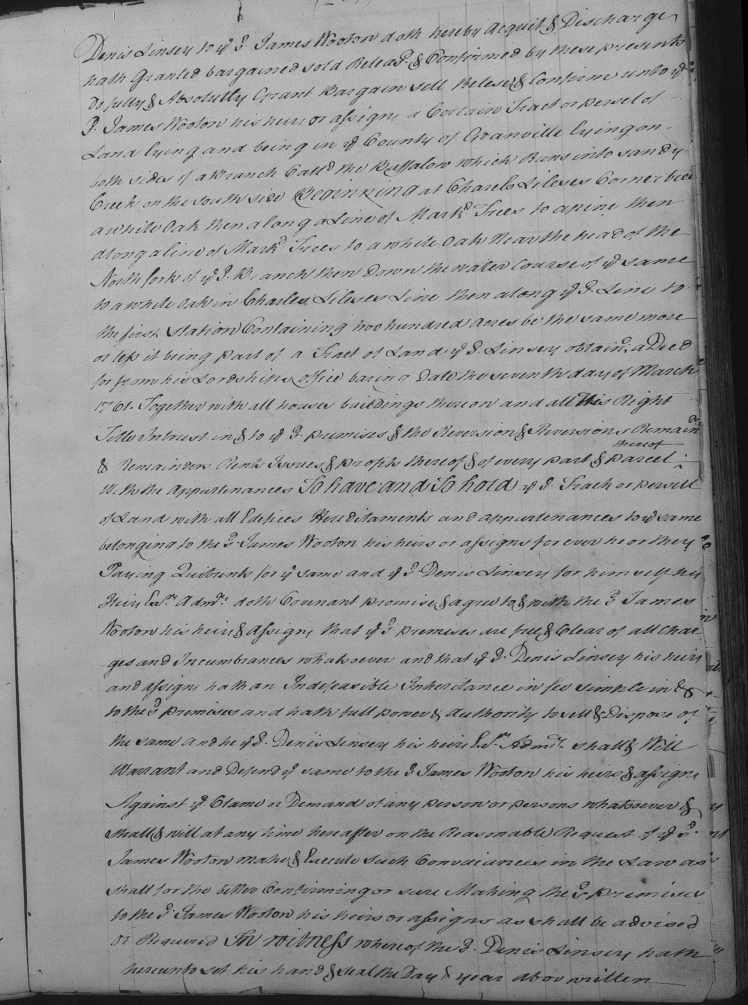 Denis Linsey to ye sd. James Wooton doth hereby Acquit & Discharge
hath Granted bargained sold Releasd. & Confirmed by these presents
do fully & Absolutly Grant Bargain sell Relese & Confirm unto ye
sd. James Wooton his heirs or assigns a Certain Tract or persel of
Land lying and being in ye County of Granville lying on
both sides of a Branch Calld the Buffalow which Runs into Sandy
Creek on the south side Beginning at Charels Lileses Corner tree
a white Oak then along a Line of Markd. Trees to a pine then
along a line of Markd. Trees to a white Oak Near the head of the
North fork of ye sd. Branch then Down the water Course of ye same
to a white Oak in Charles Lileses Line then along ye sd. Line to
the first station Containing two hundred acres be the same more
or less it being part of a Tract of Land ye sd. Linsey obtaind. a Deed
for from his Lordships office baring Date the seventh day of March
1761. Together with all houses buildings thereon and all His Right
Title Intrust in & to ye sd. premises & the Reversion & Reversions Remain
der
& Remainders Rents Issues & profits thereof & of every part & parcel
thereof
With the Appurtenances To have and To hold ye sd. Track or persell
of Land with all Edifices Hereditaments and appurtenances to ye same
belonging to the sd. James Wooton his heirs or assigns for ever he or they
Paying Quitrents for ye same and ye sd. Denis Linsey for himself his
Heirs Exrs. Admrs. doth Covenant promise & agree to & with the sd. James
Wooton his heirs & Assigns that ye sd. premises are free & Clear of all Char
ges and Incumbrances whatsoever and that ye sd. Denis Linsey his heirs
and assigns hath an Indefeasible Inheritance in fee simple in & 
to the sd. premises and hath full power & authority to sell & Dispose of
the same and he ye sd. Denis Linsey his heirs Exrs. Admrs. shall & Will
Warrant and Defend ye same to the sd. James Wooton his heirs & assigns
Against ye Clame or Demand of any person or persons whatsoever &
shall & will at any time hereafter on the Reasonable Request of ye sd.
James Wooton make & Execute such Conveiances in the Law as
shall for the better Confirming or sure Making the sd. premises
to the sd. James Wooton his heirs or assigns as shall be advised
or Required In witness whereof the sd. Denis Linsey hath
hereunto set his hand & seal the Day & year above written